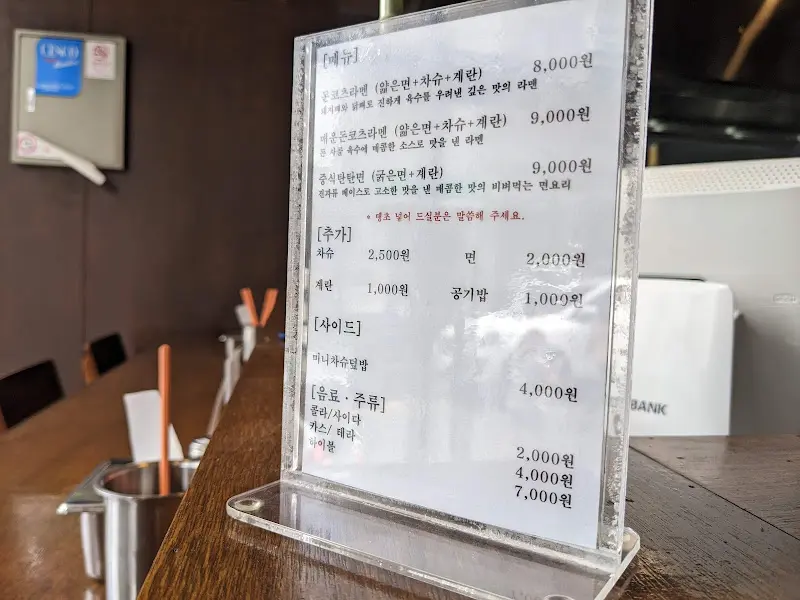 [메뉴]
돈코츠라멘 (얇은면+차슈+계란) 8,000원
돼지뼈와 닭뼈로 진하게 육수를 우려낸 깊은 맛의 라멘
매운돈코츠라멘 (얇은면+차슈+계란) 9,000원
돈 사골 육수에 매콤한 소스로 맛을 낸 라멘
중식탄탄면 (굵은면+계란) 9,000원
견과류 베이스로 고소한 맛을 낸 매콤한 맛의 비벼먹는 면요리
* 땡초 넣어 드실분은 말씀해 주세요.
[추가]
차슈 2,500원 면 2,000원
계란 1,000원 공기밥 1,000원
[사이드]
미니차슈덮밥 4,000원
[음료·주류]
콜라/사이다 2,000원
카스/ 테라 4,000원
하이볼 7,000원
BANK